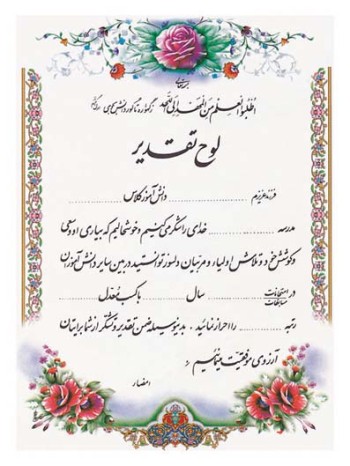 اطلبوا العلم من المهد الی اللحد ز گهواره تا گور دانش بجوی
لوح تقدیر
فرزند عزیزم ........ دانش آموز کلاس ........
مدرسه ........ خدای را شکر می‌کنیم و خوشحالیم که بیاری او و سعی
و کوشش خود و تلاش اولیاء و مربیان دلسوز توانستید در بین سایر دانش آموزان
در امتحانات مسابقات ........ سال ........ با کسب معدل ........
رتبه ........ را احراز نمائید . بدینوسیله ضمن تقدیر و تشکر از شما برایتان
آرزوی موفقیت مینمائیم
امضاء